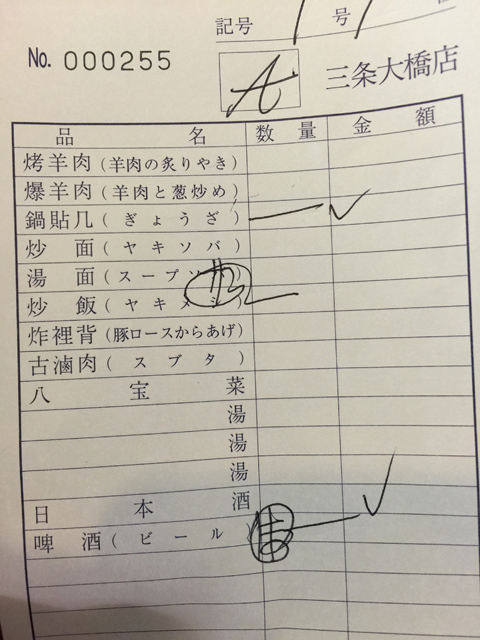 記号 号
No. 000255
A 三条大橋店
品 名 数 量 金 額
烤羊肉(羊肉の炙りやき)
爆羊肉(羊肉と葱炒め)
鍋貼几(ぎょうざ)
炒 面(ヤキソバ)
湯 面(スープソバ)
炒 飯(ヤキメシ)
炸裡背(豚ロースからあげ)
古滷肉(スブタ)
八 宝 菜
湯
湯
湯
日 本 酒
啤 酒(ビール)